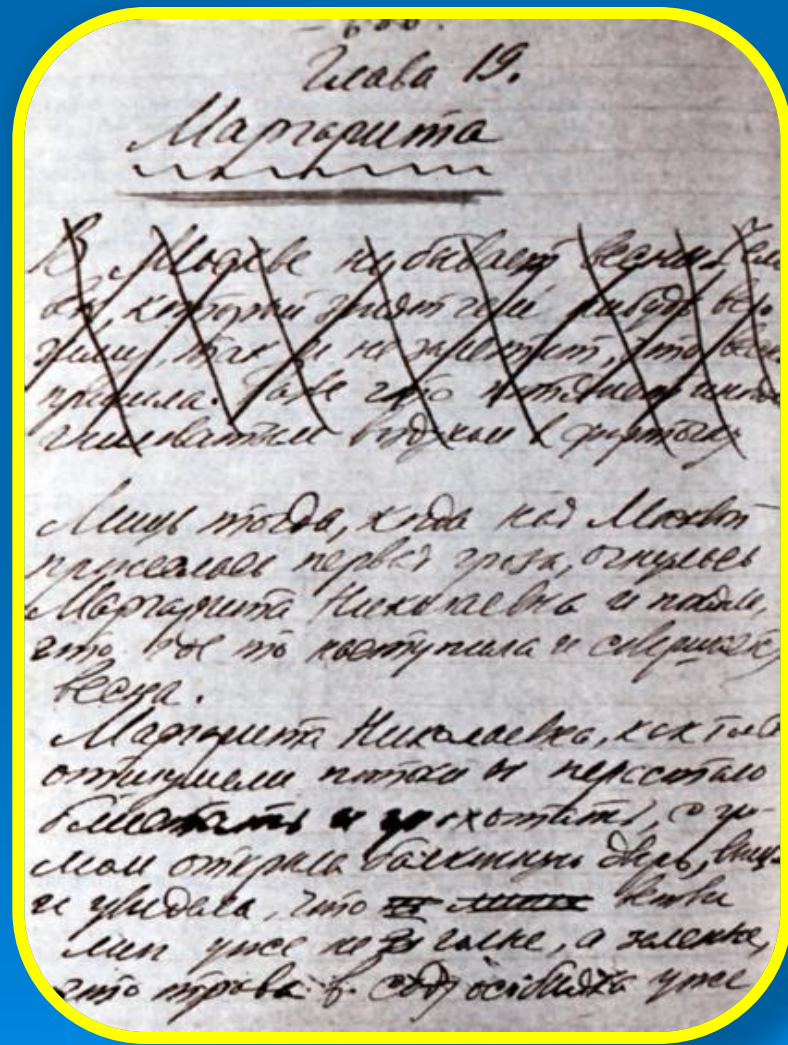 Глава 19.
Маргарита
В Москве не бывает весны. Чело
век, который сидит
зиму, так и не заметит, что весна
пришла. Даже
гниловатым воздухом в форточку
Лишь тогда, когда над Москвой
пронеслась первая гроза, очнулась
Маргарита Николаевна и поняла,
что наступила и совершается
весна.
Маргарита Николаевна, как только
отшумели потоки и перестало
блистать и грохотать, с гро-
мом открыла балконную дверь,
и увидела, что ветви
лип уже не голые, а зеленые,
что трава в саду особняка уже